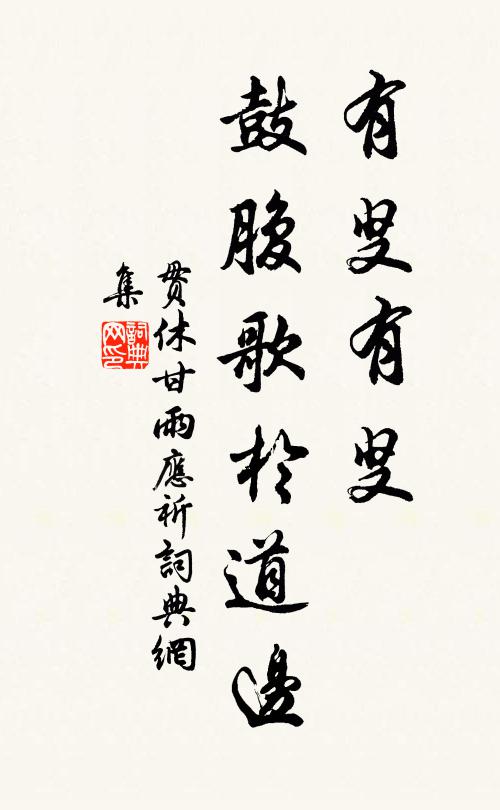 有叟有叟
鼓腹歌於道邊
貫休甘雨應祈詞典網
集
詞典网印